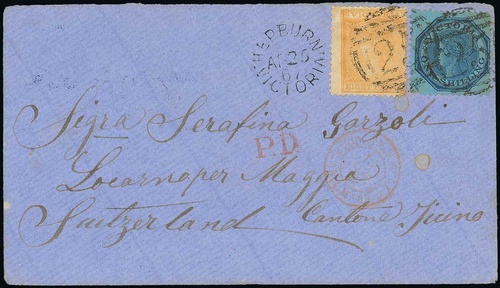 HEPBURN
AP 25
67
VICTORIA
VICTORIA
SHILLING
Sigra Serafina Garzoli
P.D.
Locarno per Maggia
Switzerland Cantone Ticino